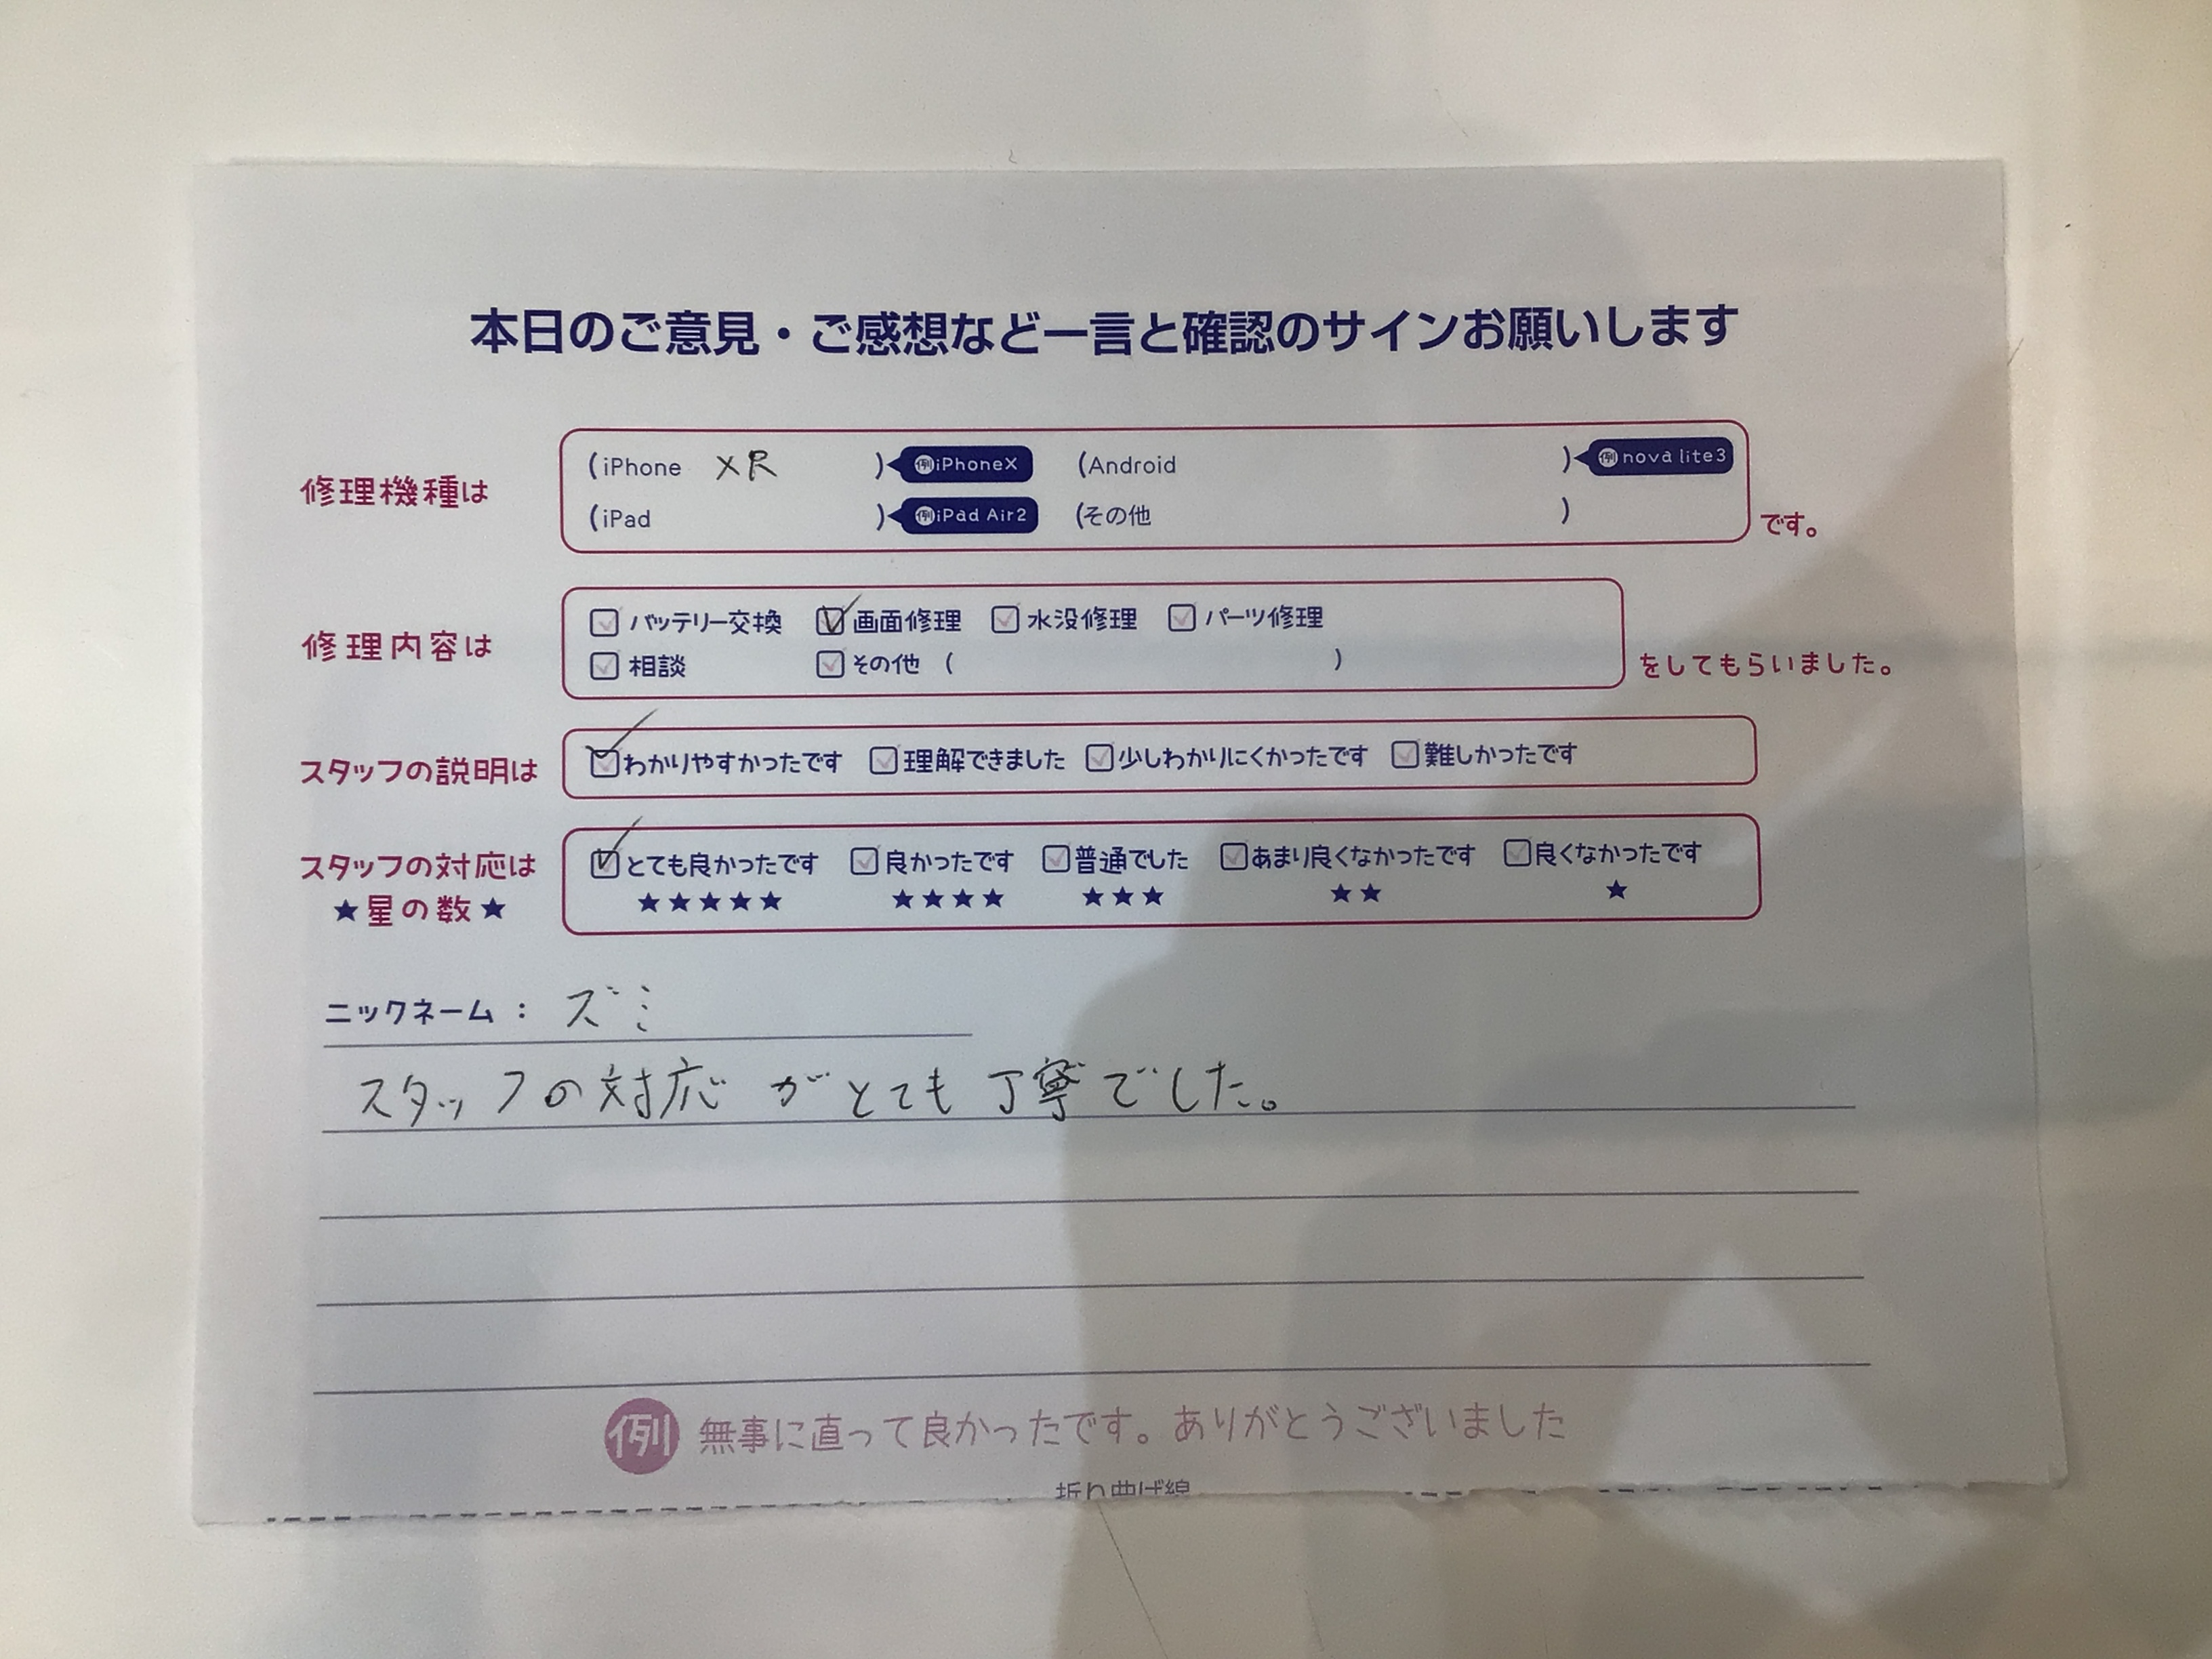 本日のご意見・ご感想など一言と確認のサインお願いします
修理機種は
(iPhone XR ) 例iPhoneX (Android ) 例nova lite3
(iPad ) 例iPad Air2 (その他 ) です。
修理内容は
バッテリー交換 画面修理 水没修理 パーツ修理
相談 その他 ( ) をしてもらいました。
スタッフの説明は わかりやすかったです 理解できました 少しわかりにくかったです 難しかったです
スタッフの対応は とても良かったです 良かったです 普通でした あまり良くなかったです 良くなかったです
★星の数★ ★★★★★ ★★★★ ★★★ ★★ ★
ニックネーム : ズミ
スタッフの対応がとても丁寧でした。
例 無事に直って良かったです。ありがとうございました
折り曲げ線